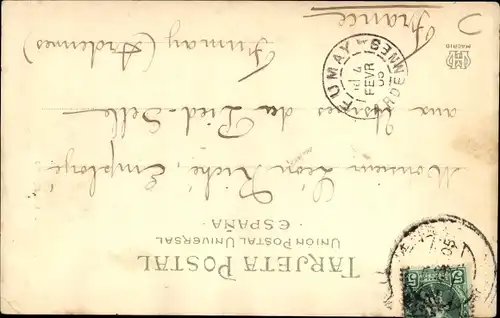 TARJETA POSTAL
UNION POSTAL UNIVERSAL
· ESPAÑA ·
5
Monsieur Léon Riché, Employé
aux Usines du Pied-Selle
Fumay (Ardennes)
France
FUMAY
ARDENNES
4
FEVR
05
MADRID